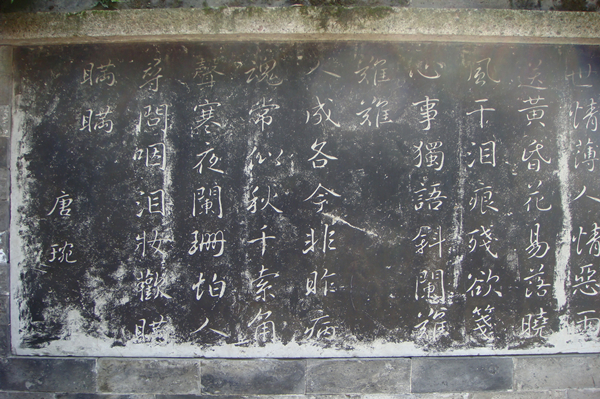 世情薄人情惡雨
送黃昏花易落曉
風干泪痕殘欲箋
心事獨語斜闌難
難難
人成各今非昨病
魂常似秋千索角
聲寒夜闌珊怕人
尋問咽泪妝歡瞞
瞞瞞
唐琬